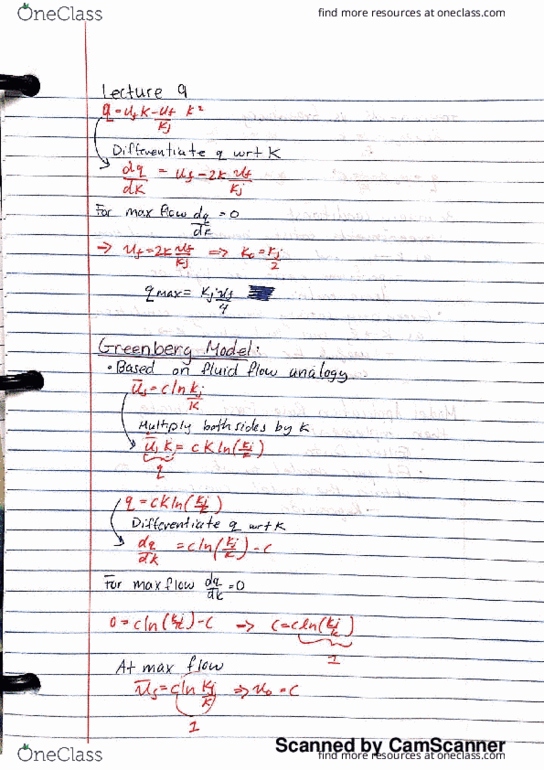 OneClass
find more resources at oneclass.com
Lecture 9
q = u_f k - u_f/k_j k²
Differentiate q wrt K
dq/dk = u_f - 2k u_f/k_j
For max flow dq/dk = 0
⇒ u_f = 2k u_f/k_j ⇒ k_o = k_j/2
q max = k_j u_f/4
Greenberg Model:
• Based on fluid flow analogy
ū_s = c ln k_j/k
Multiply both sides by K
ū_s k = c k ln(k_j/k)
q
q = c k ln(k_j/k)
Differentiate q wrt K
dq/dk = c ln(k_j/k) - c
For max flow dq/dk = 0
0 = c ln(k_j/k) - c → c = c ln(k_j/k)
1
At max flow
ū_s = c ln k_j/k ⇒ u_o = c
1
Scanned by CamScanner
OneClass
find more resources at oneclass.com